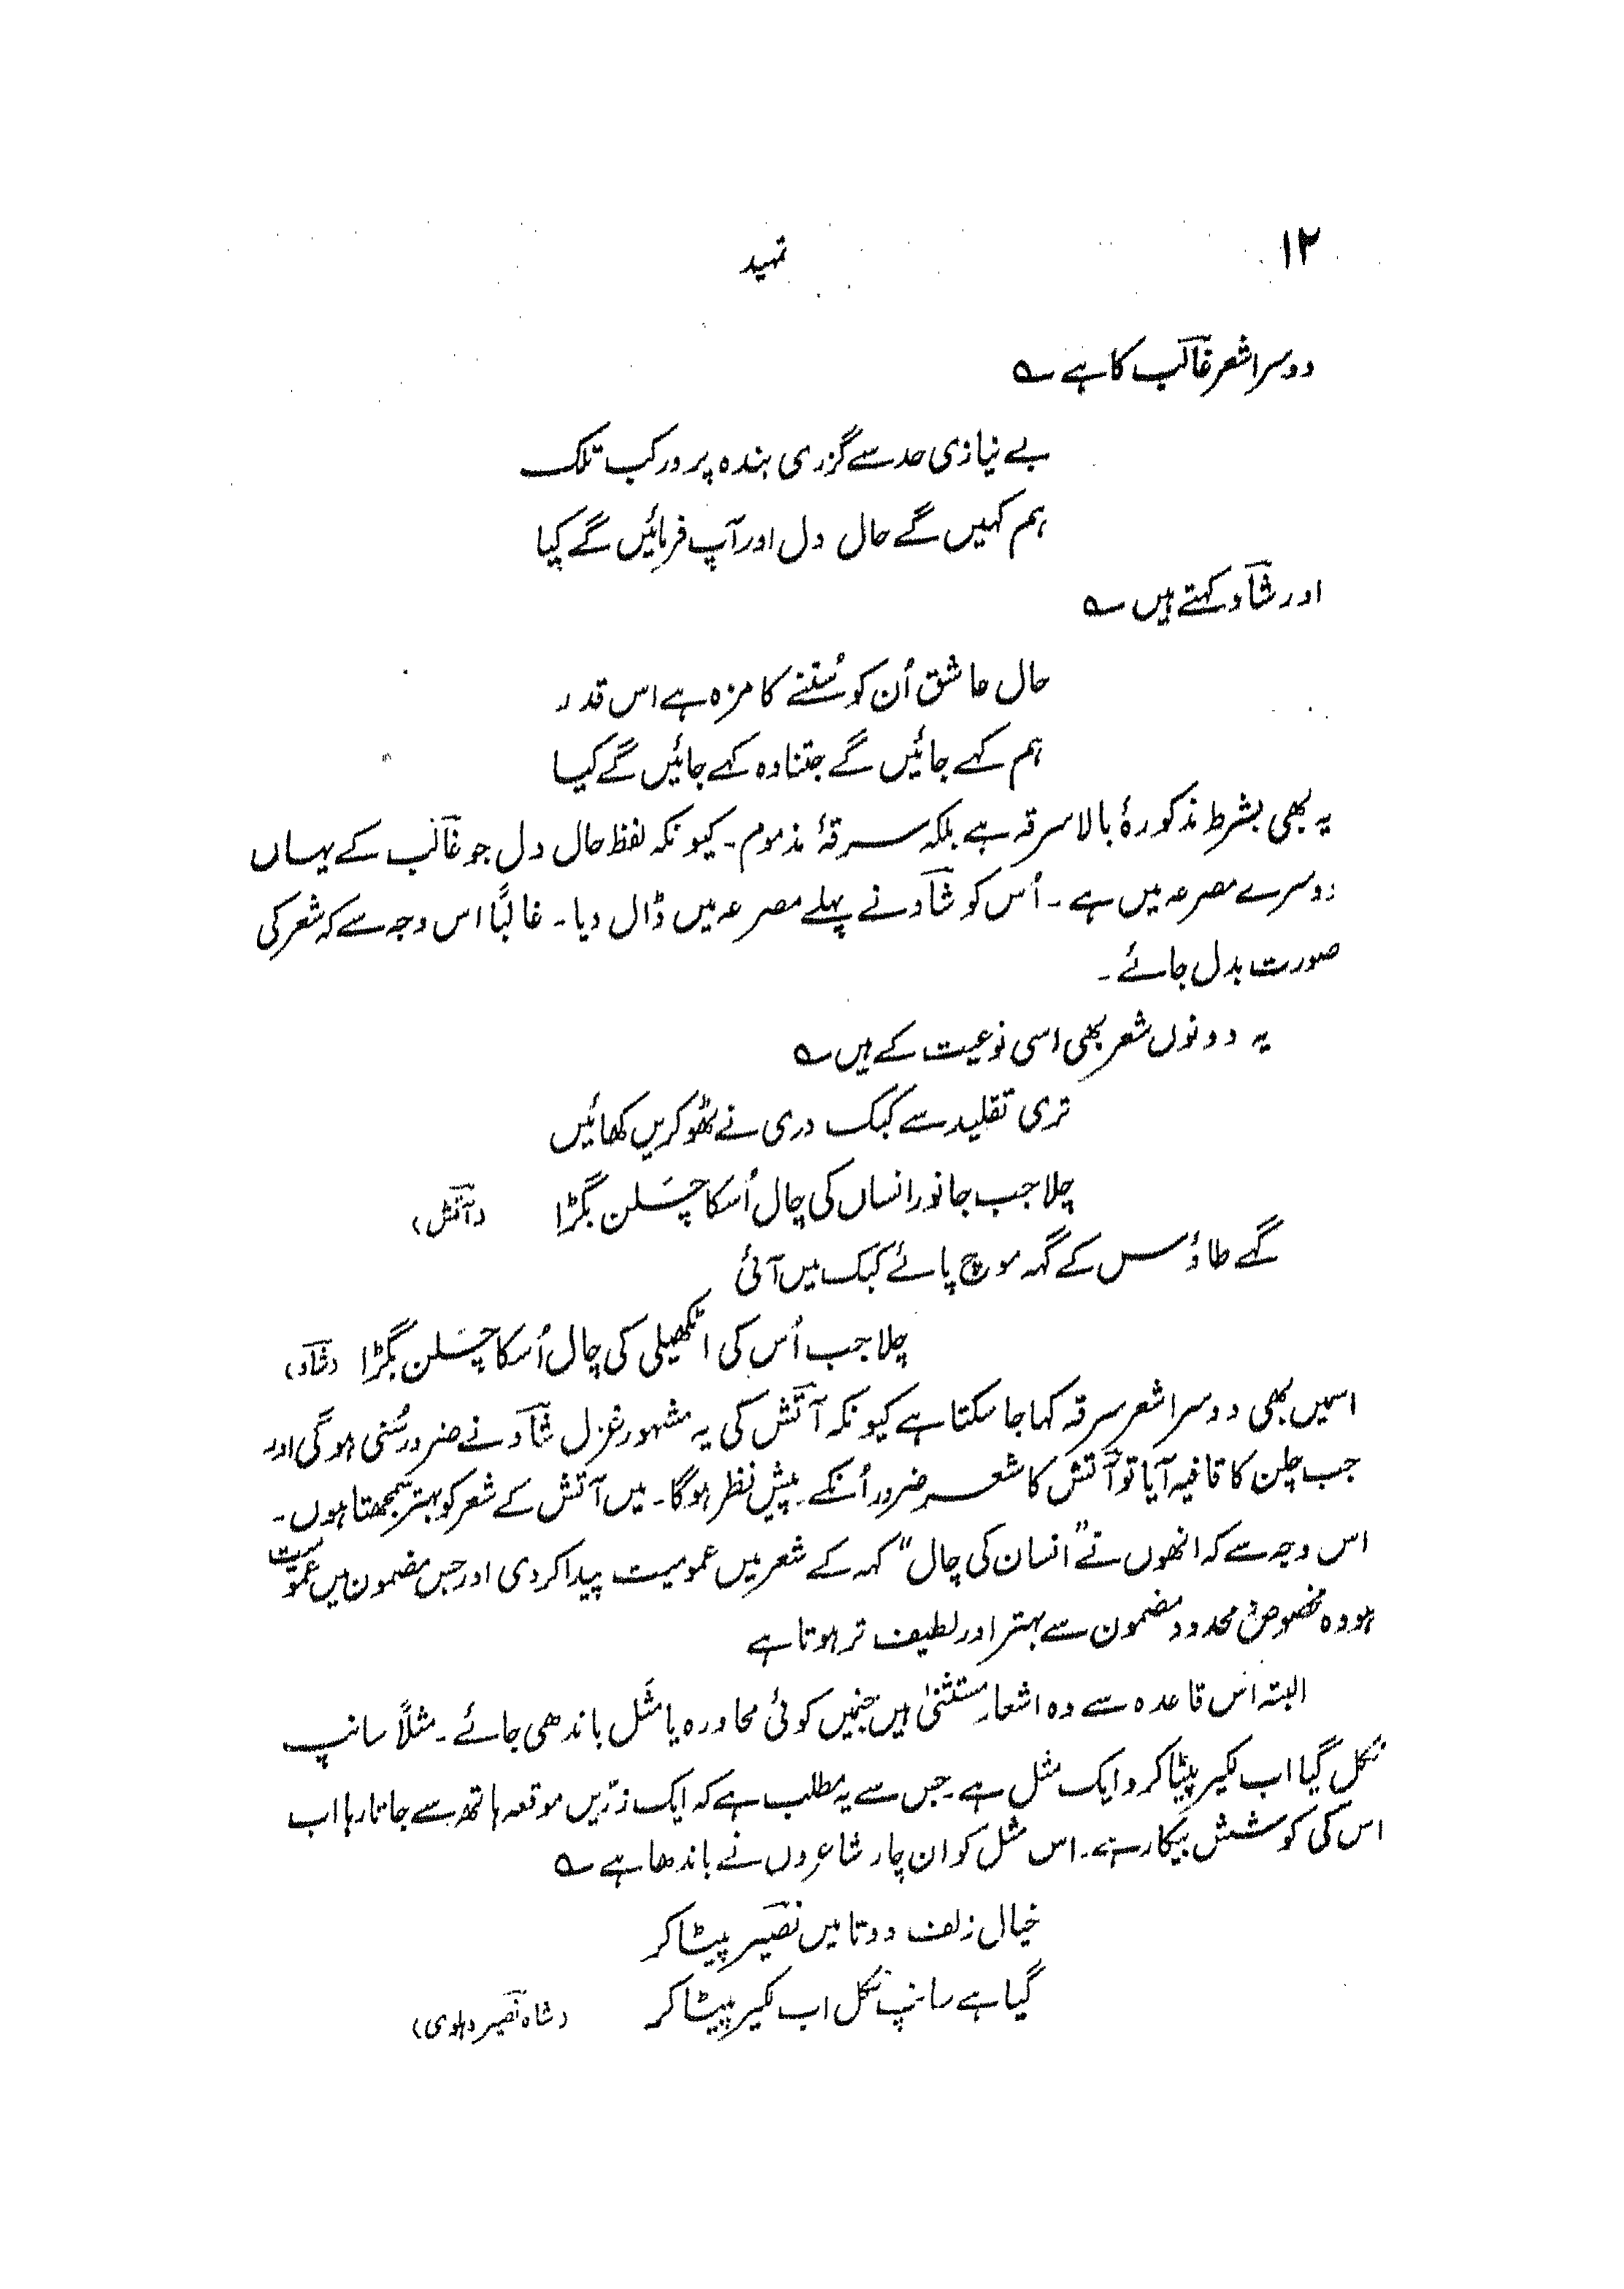 ۱۲
تمہید
دوسرا شعر غالب کا ہے ؎
بے نیازی حد سے گزری بندہ پرور کب تلک
ہم کہیں گے حال دل اور آپ فرمائیں گے کیا
اور شاد کہتے ہیں ؎
حال عاشق اُن کو سُننے کا مزہ ہے اس قدر
ہم کہے جائیں گے جتنا وہ کہے جائیں گے کیا
یہ بھی بشرط مذکورۂ بالا سرقہ ہے بلکہ سرقۂ مذموم۔ کیونکہ لفظ حال دل جو غالب کے یہاں
دوسرے مصرعہ میں ہے۔ اُس کو شاد نے پہلے مصرعہ میں ڈال دیا۔ غالباً اس وجہ سے کہ شعر کی
صورت بدل جائے۔
یہ دونوں شعر بھی اسی نوعیت کے ہیں ؎
تری تقلید سے کبک دری نے ٹھوکریں کھائیں
چلا جب جانور انساں کی چال اُسکا چَلن بگڑا (آتش)
گہے طاؤس کے گہہ موچ پائے کبک میں آئی
چلا جب اُس کی اٹکھیلی کی چال اُسکا چَلن بگڑا (شاد)
اسمیں بھی دوسرا شعر سرقہ کہا جا سکتا ہے کیونکہ آتش کی یہ مشہور غزل شاد نے ضرور سُنی ہوگی اور
جب چلن کا قافیہ آیا تو آتش کا شعر ضرور اُنکے پیش نظر ہوگا۔ میں آتش کے شعر کو بہتر سمجھتا ہوں۔
اس وجہ سے کہ انھوں نے ”انسان کی چال“ کہہ کے شعر میں عمومیت پیدا کر دی اور جس مضمون میں عمومیت
ہو وہ مخصوص و محدود مضمون سے بہتر اور لطیف تر ہوتا ہے
البتہ اس قاعدہ سے وہ اشعار مستثنیٰ ہیں جنمیں کوئی محاورہ یا مثَل باندھی جائے۔ مثلاً سانپ
نکل گیا اب لکیر پیٹا کرو ایک مثل ہے۔ جس سے یہ مطلب ہے کہ ایک زرّیں موقعہ ہاتھ سے جاتا رہا اب
اس کی کوشش بیکار ہے۔ اس مثل کو ان چار شاعروں نے باندھا ہے ؎
خیال زلف دوتا میں نصیر پیٹا کر
گیا ہے سانپ نکل اب لکیر پیٹا کر (شاہ نصیر دہلوی)